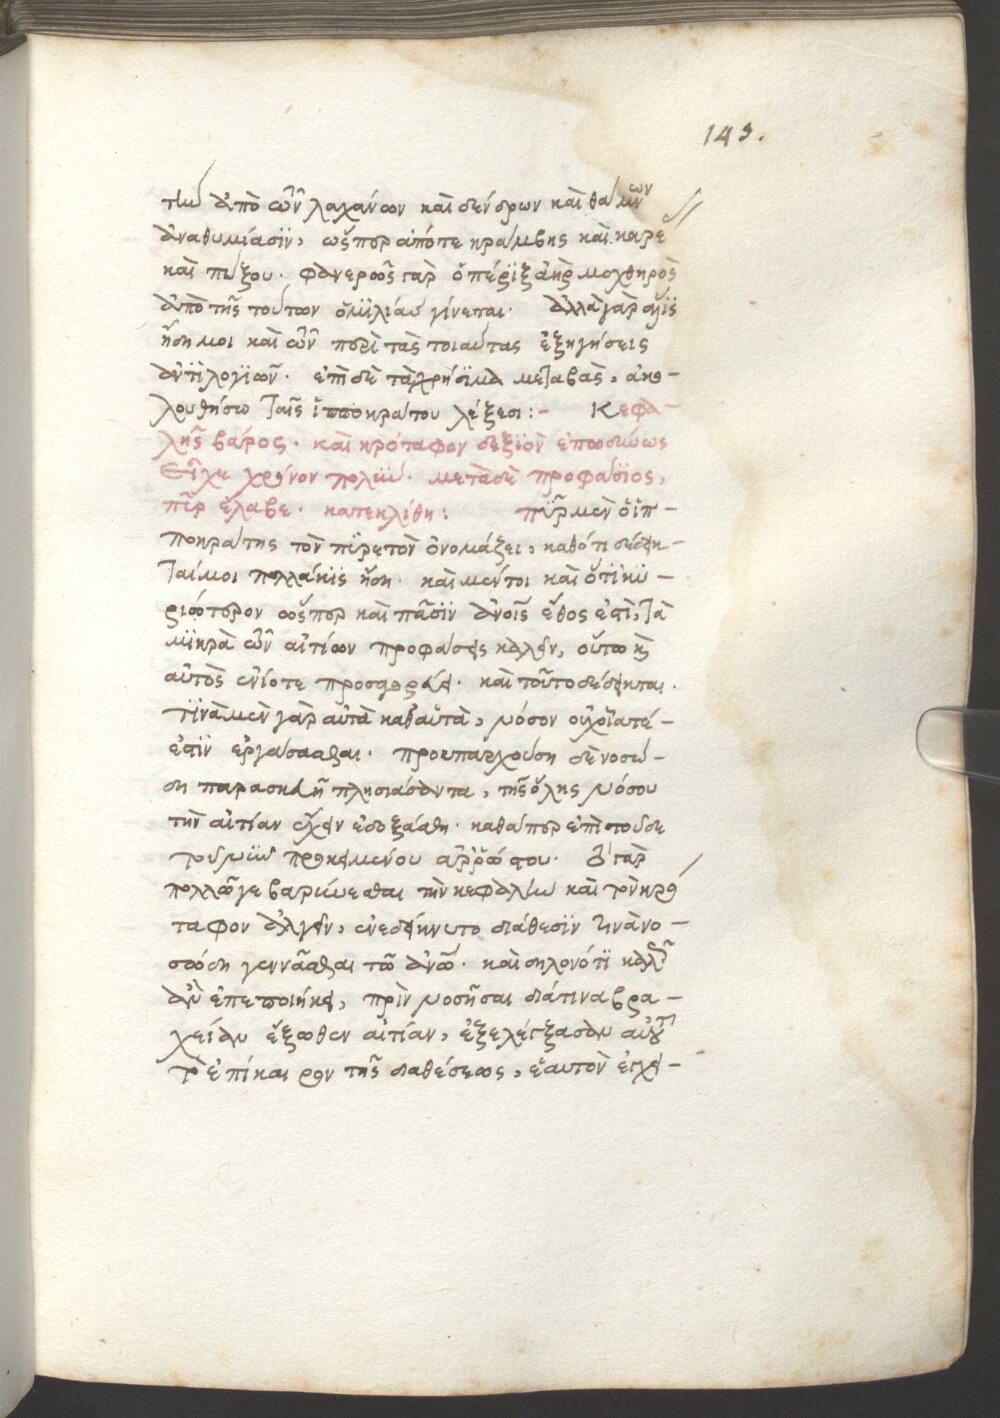 143.
τὴν ἀπὸ τῶν λαχάνων καὶ δένδρων καὶ θάμνων
ἀναθυμίασϊν, ὥσπερ ἀπό τε κράμβης καὶ καρύ
καὶ πύξου. φανερῶς γὰρ ὁ πέριξ ἀὴρ μοχθηρὸς
ἀπὸ τῆς τούτων ὁμϊλίας γίνεται. ἀλλὰ γὰρ ἅλϊς
ἤδη μοι καὶ τῶν περὶ τὰς τοιαύτας ἐξηγήσεις
ἀντϊλογϊῶν. ἐπὶ δὲ τὰ χρήσϊμα μεταβὰς, ἀκο-
λουθήσω ταῖς ἱπποκράτου λέξεσι:- Κεφα-
λῆς βάρος. καὶ κρόταφον δεξϊὸν ἐπωδύνως
Εἶχε χρόνον πολὺν. μετὰ δὲ προφάσϊος,
πῦρ ἔλαβε. κατεκλίθη: πῦρ μὲν ὁ ἱπ-
ποκράτης τὸν πυρετὸν ὀνομάζει, καθότι δέδεικ-
ταί μοι πολλάκϊς ἤδη. καὶ μέντοι καὶ ὅτϊ κϋ-
ριώτερον ὥσπερ καὶ πᾶσϊν ἀνοῖς ἔθος ἐστὶ, τὰ
μϊκρὰ τῶν αἰτίων προφάσεις καλεῖν, οὕτω κ
αὐτὸς ἐνίοτε προσαγορεύει. καὶ τοῦτο δέδεικται.
τϊνὰ μὲν γὰρ αὐτὰ καθ' αὑτὰ, νόσον οὐχ οἷά τέ-
ἐστϊν ἐργάσασθαι. προϋπαρχούσῃ δὲ νοσώ-
δη παρασκευῇ πλησιάσαντα, τῆς ὅλης νόσου
τὴν αἰτίαν ἔχειν ἐδοξάσθη. καθάπερ ἐπὶ τοῦδε
τοῦ νῦν προκειμένου ἀρρώστου. ὃ γὰρ
πολλῷ γε βαρύνεσθαι τὴν κεφαλὴν καὶ τὸν κρό
ταφον ἀλγεῖν, ἐνεδείκνυτο διάθεσϊν τινὰ νο-
σώδη γεννᾶσθαι τῷ ἀνῶ. καὶ δηλονότϊ καλῶς
ἂν ἐπεποιήκει, πρὶν νοσῆσαι διά τινα βρα-
χεῖαν ἔξωθεν αἰτίαν, ἐξελέγξασαν αὐτοῦ
τὸ ἐπίκαιρον τῆς διαθέσεως, ἑαυτὸν ἐγχει-